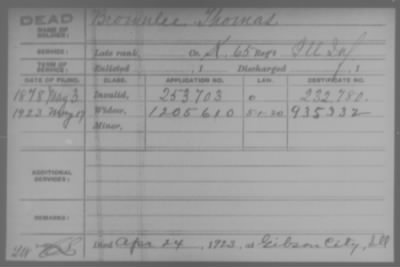 DEAD Brownlee Thomas
NAME OF SOLDIER:
SERVICE: Late rank, Co. K, 65 Reg't Ill Inf
TERM OF SERVICE: Enlisted , 1 Discharged , 1
DATE OF FILING. CLASS. APPLICATION NO. LAW. CERTIFICATE NO.
1878 May 3 Invalid, 253.703 0 232,780.
1923 May 17 Widow, 1205610 5-1-20 935332
Minor,
ADDITIONAL SERVICES:
REMARKS:
Died Apr 24, 1923, at Gibson City, Ill